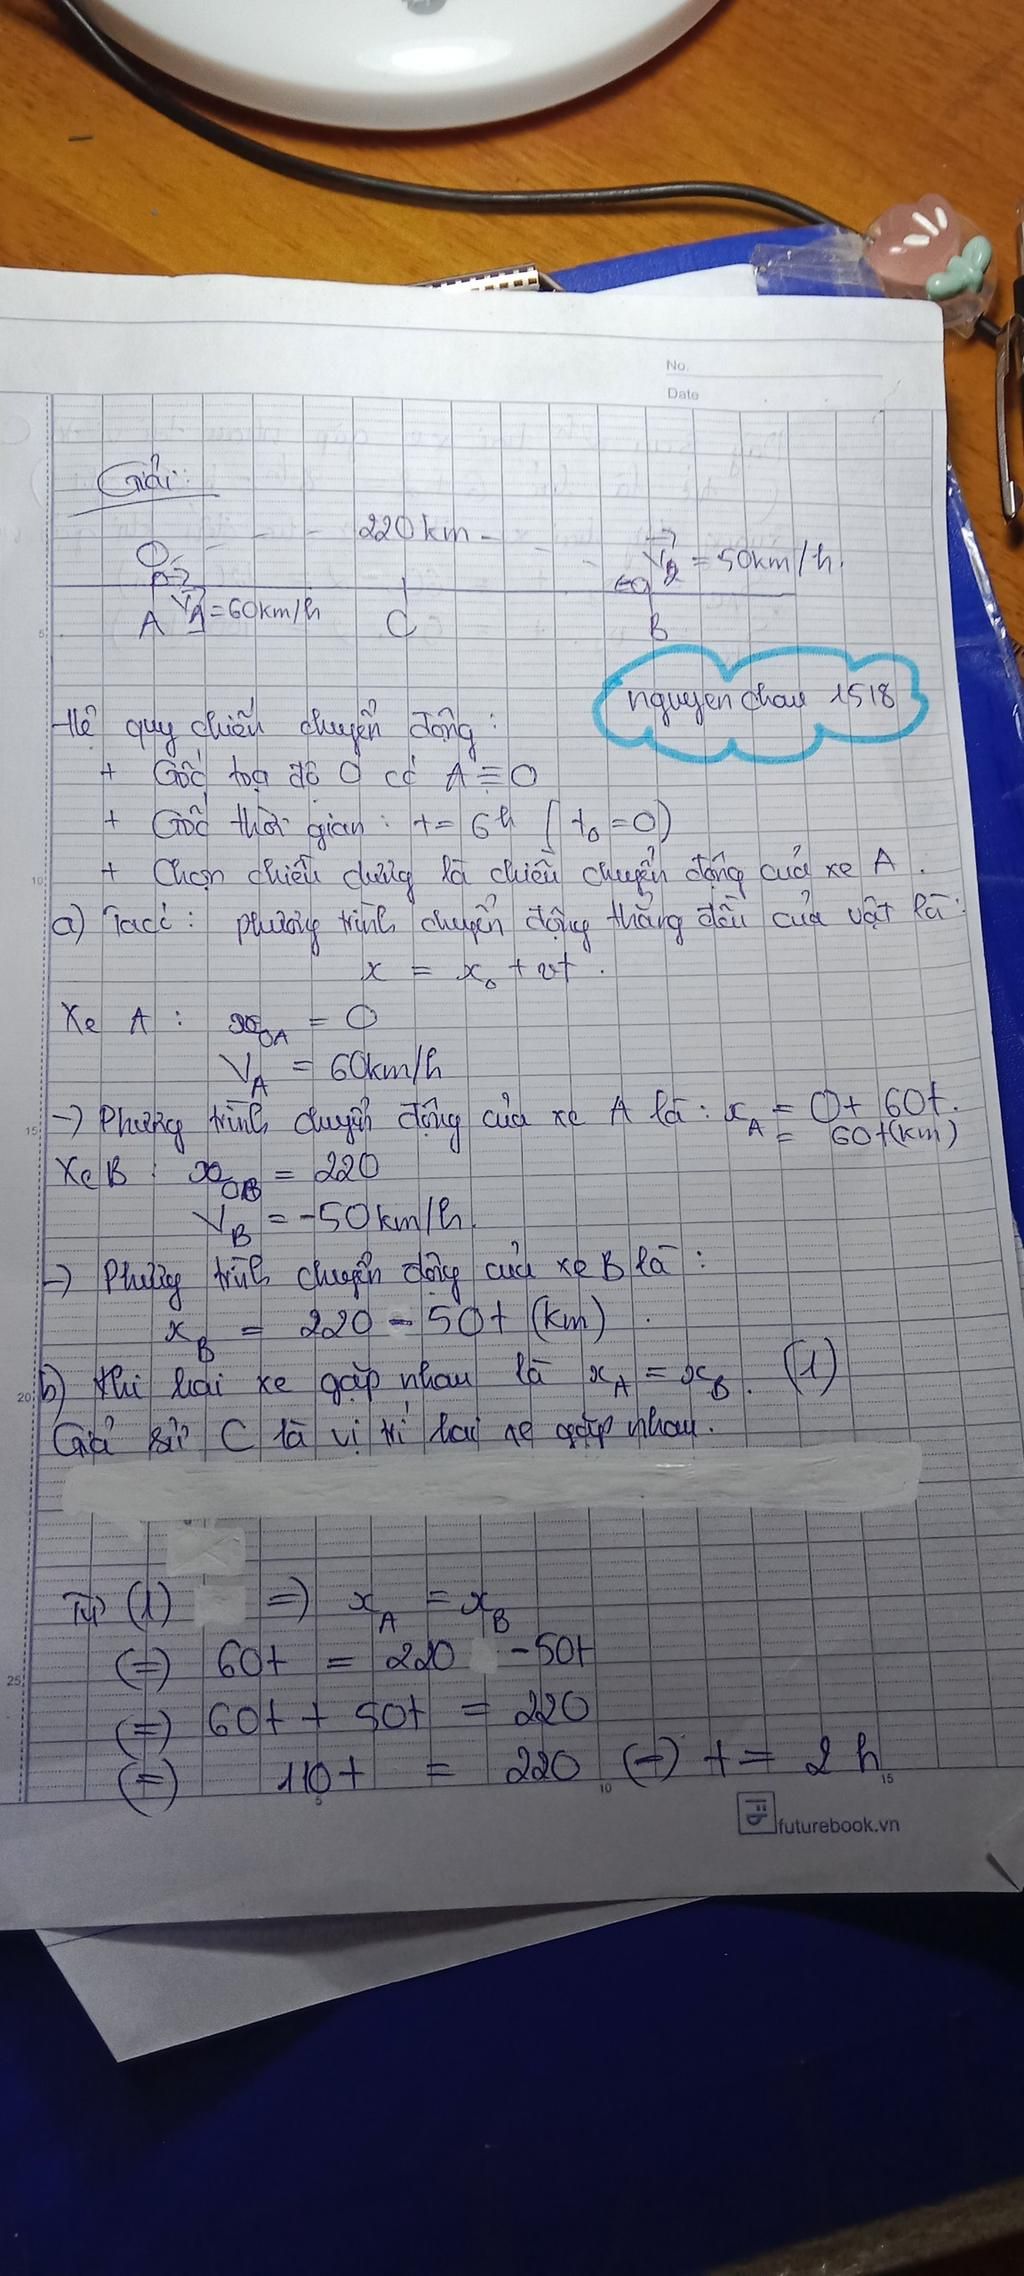 No.
Date
Giải:
220km
O
V₂ = 50km/h.
A
V_A = 60km/h
C
B
nguyenchau 1518
Hệ quy chiếu chuyển động:
+ Gốc toạ độ O có A ≡ O
+ Gốc thời gian: t = 6h (t₀ = 0)
+ Chọn chiều dương là chiều chuyển động của xe A.
a) Ta có: phương trình chuyển động thẳng đều của vật là:
x = x₀ + vt.
Xe A: x₀A = 0
V_A = 60km/h
-) Phương trình chuyển động của xe A là: x_A = 0 + 60t.
= 60t(km)
Xe B: x₀B = 220
V_B = -50km/h.
-) Phương trình chuyển động của xe B là:
x_B = 220 - 50t (km).
b) Khi hai xe gặp nhau là x_A = x_B. (1)
Giả sử C là vị trí hai xe gặp nhau.
Từ (1) =) x_A = x_B
(=) 60t = 220 - 50t
(=) 60t + 50t = 220
(=) 110t = 220 (=) t = 2h
5
10
15
20
25
5
10
15
futurebook.vn